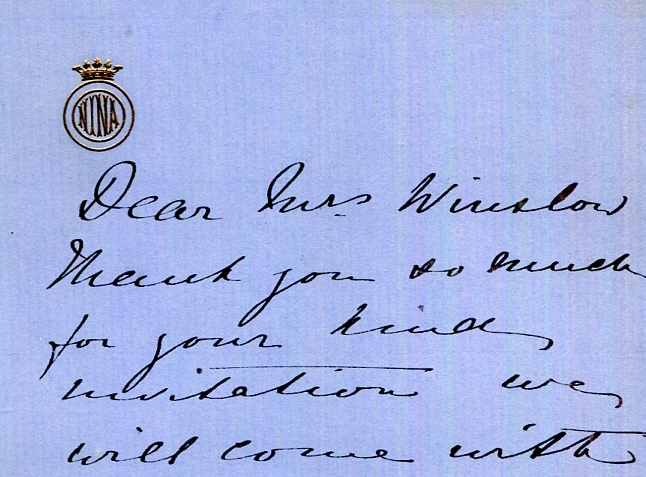 NINA
Dear Mrs Winslow
Thank you so much
for your kind
invitation we
will come with